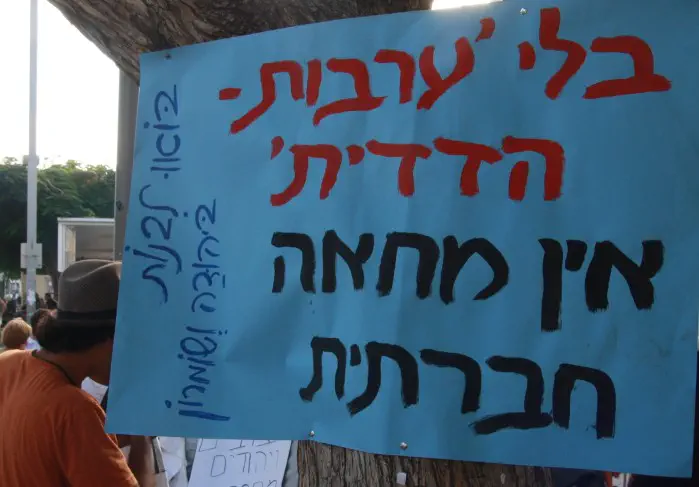 בלי 'ערבות-
הדדית'
אין מחאה
חברתית
בּוֹאוּ לִבְנוֹת
בִּיהוּדָה וְשׁוֹמְרוֹן
ויהודים